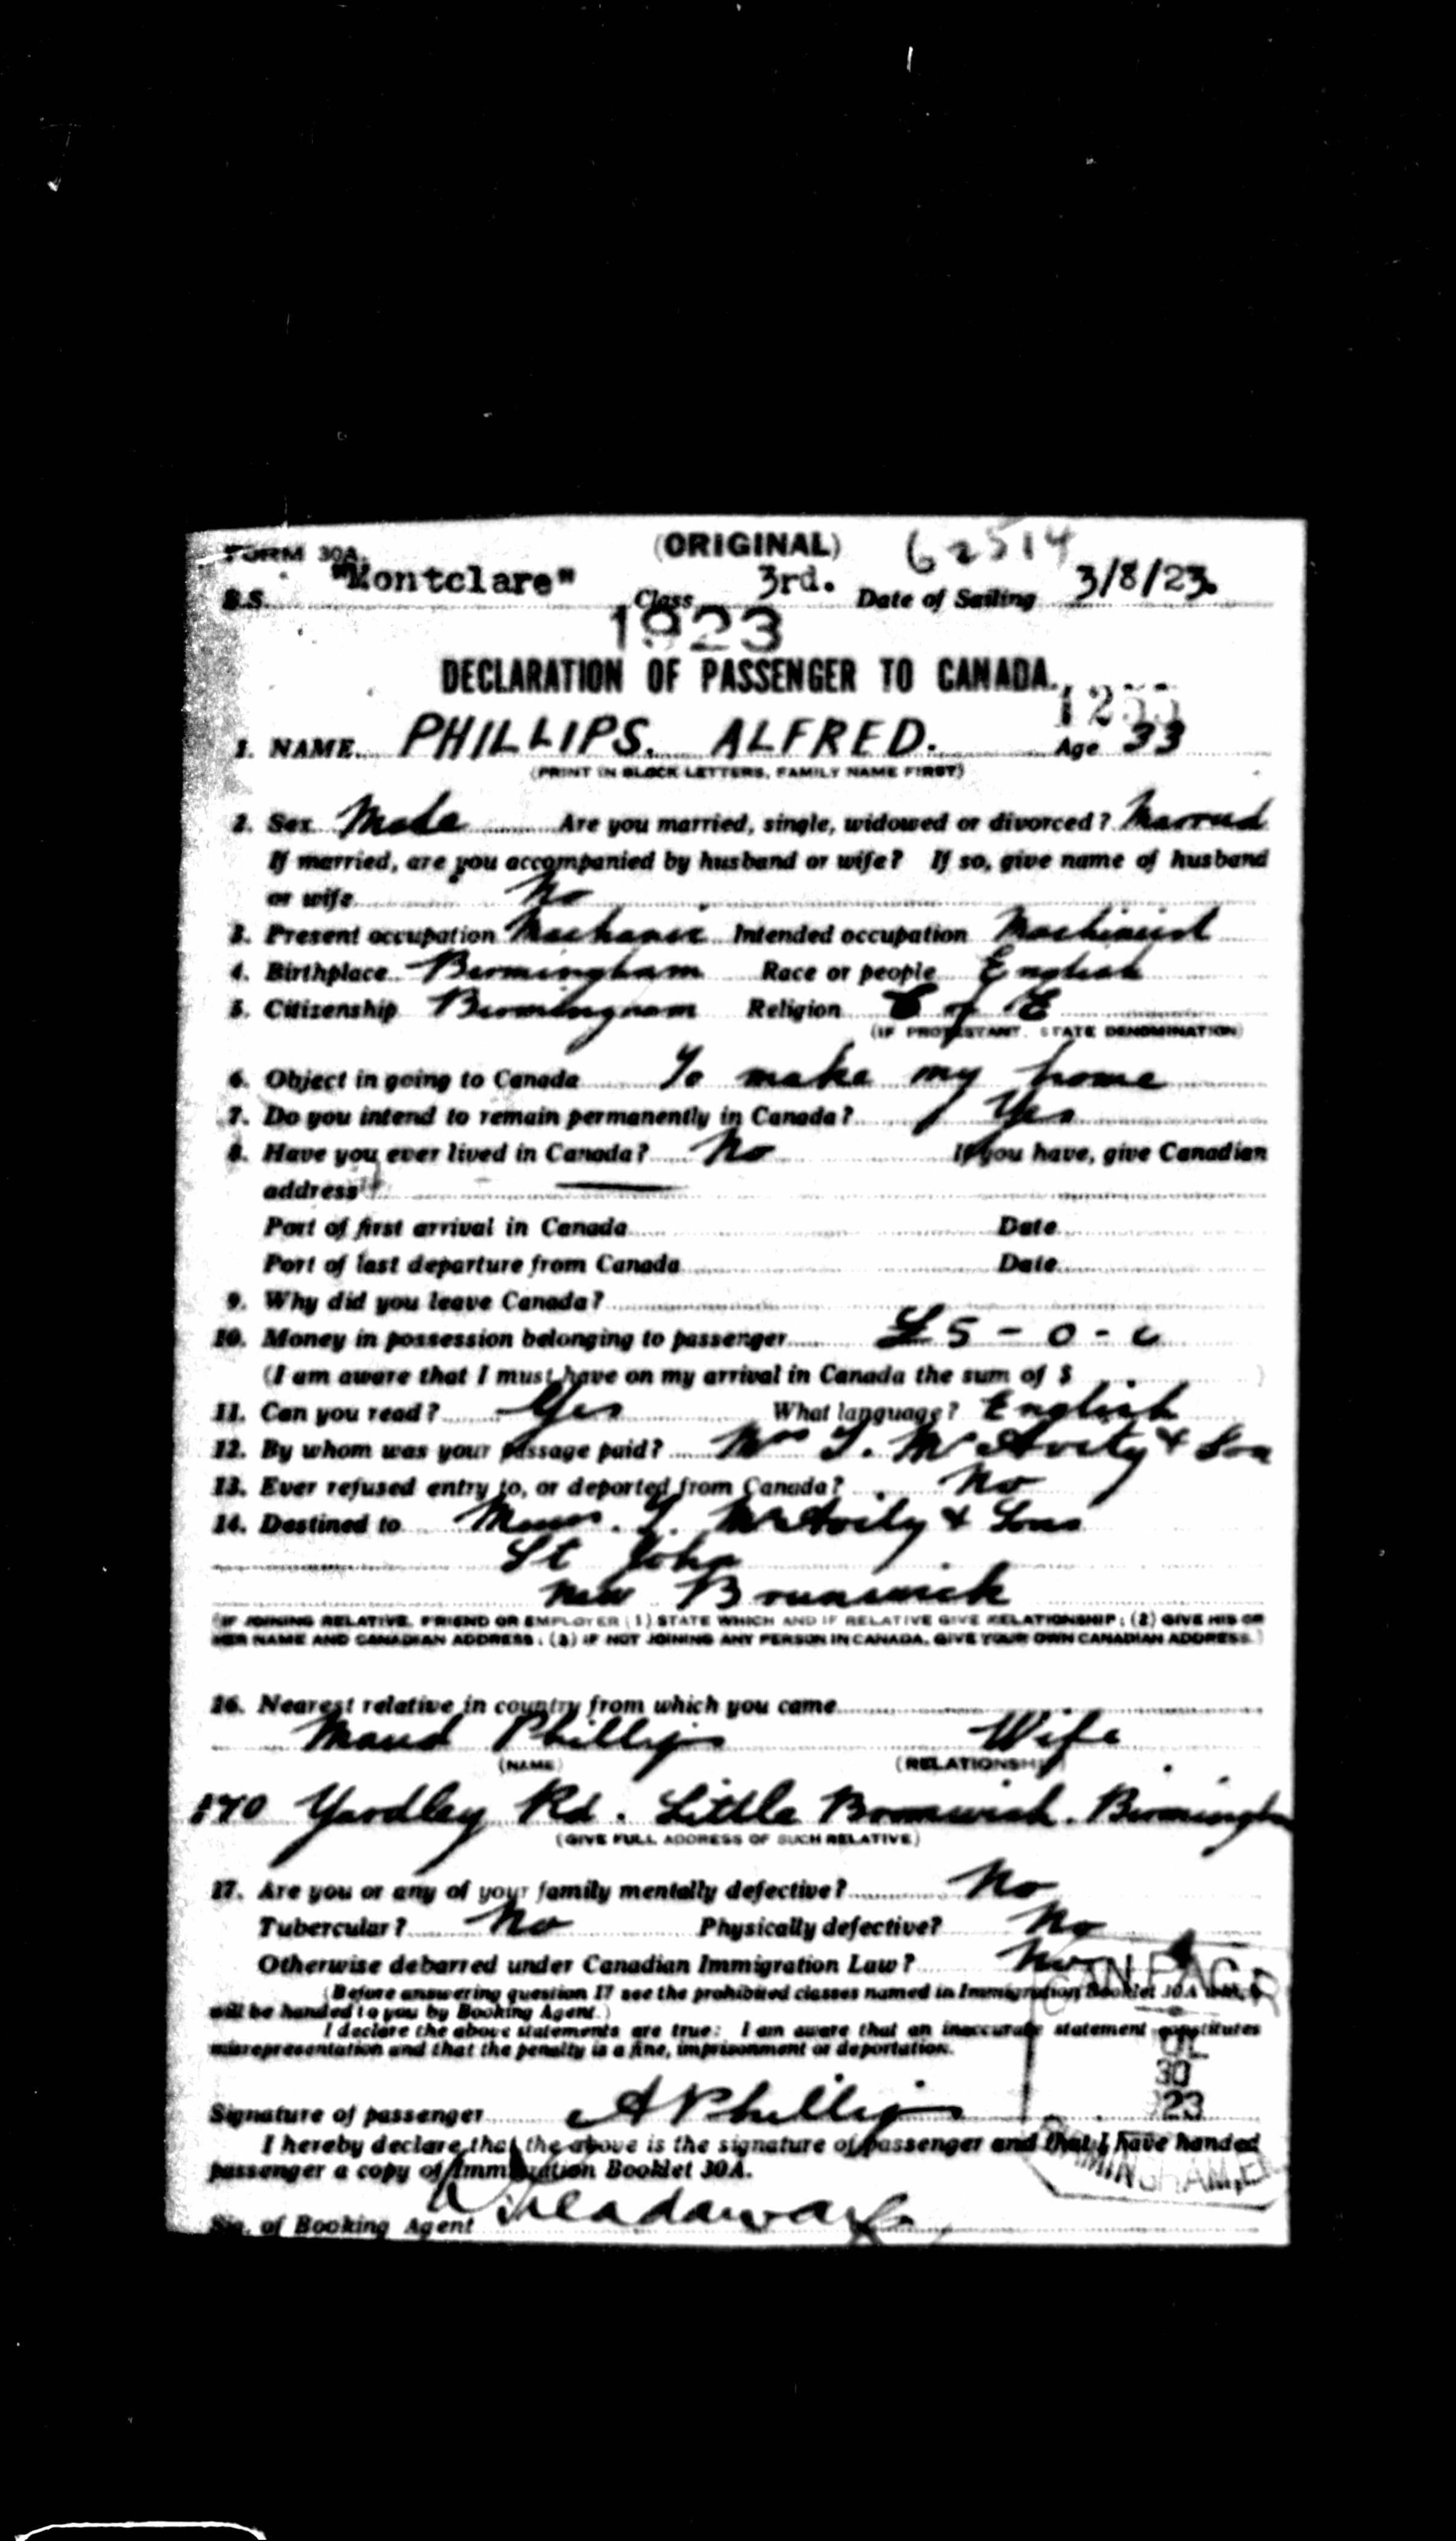 FORM 30A. (ORIGINAL) 62514
S.S. "Montclare" Class 3rd. Date of Sailing 3/8/23.
1923
DECLARATION OF PASSENGER TO CANADA.
1255
1. NAME PHILLIPS. ALFRED. Age 33
(PRINT IN BLOCK LETTERS, FAMILY NAME FIRST)
2. Sex Male Are you married, single, widowed or divorced? Married
If married, are you accompanied by husband or wife? If so, give name of husband
or wife No
3. Present occupation Mechanic Intended occupation Machinist
4. Birthplace Birmingham Race or people English
5. Citizenship Birmingham Religion C of E
(IF PROTESTANT. STATE DENOMINATION)
6. Object in going to Canada To make my home
7. Do you intend to remain permanently in Canada? Yes
8. Have you ever lived in Canada? No If you have, give Canadian
address
Port of first arrival in Canada Date
Port of last departure from Canada Date
9. Why did you leave Canada?
10. Money in possession belonging to passenger £5 - 0 - 0
(I am aware that I must have on my arrival in Canada the sum of $ )
11. Can you read? Yes What language? English
12. By whom was your passage paid? T. McAvity & Son
13. Ever refused entry to, or deported from Canada? No
14. Destined to Messrs. T. McAvity & Sons
St John
New Brunswick
(IF JOINING RELATIVE, FRIEND OR EMPLOYER (1) STATE WHICH AND IF RELATIVE GIVE RELATIONSHIP; (2) GIVE HIS OR
HER NAME AND CANADIAN ADDRESS; (3) IF NOT JOINING ANY PERSON IN CANADA, GIVE YOUR OWN CANADIAN ADDRESS.)
16. Nearest relative in country from which you came
Maud Phillips Wife
(NAME) (RELATIONSHIP)
Yardley Rd. Little Bromwich. Birmingham
(GIVE FULL ADDRESS OF SUCH RELATIVE)
17. Are you or any of your family mentally defective? No
Tubercular? No Physically defective? No
Otherwise debarred under Canadian Immigration Law? No
(Before answering question 17 see the prohibited classes named in Immigration Booklet 30A
will be handed to you by Booking Agent.)
I declare the above statements are true: I am aware that an inaccurate statement constitutes
misrepresentation and that the penalty is a fine, imprisonment or deportation.
CAN. PAC.
30
23
Signature of passenger A Phillips
I hereby declare that the above is the signature of passenger and that I have handed
passenger a copy of Immigration Booklet 30A.
Sig. of Booking Agent